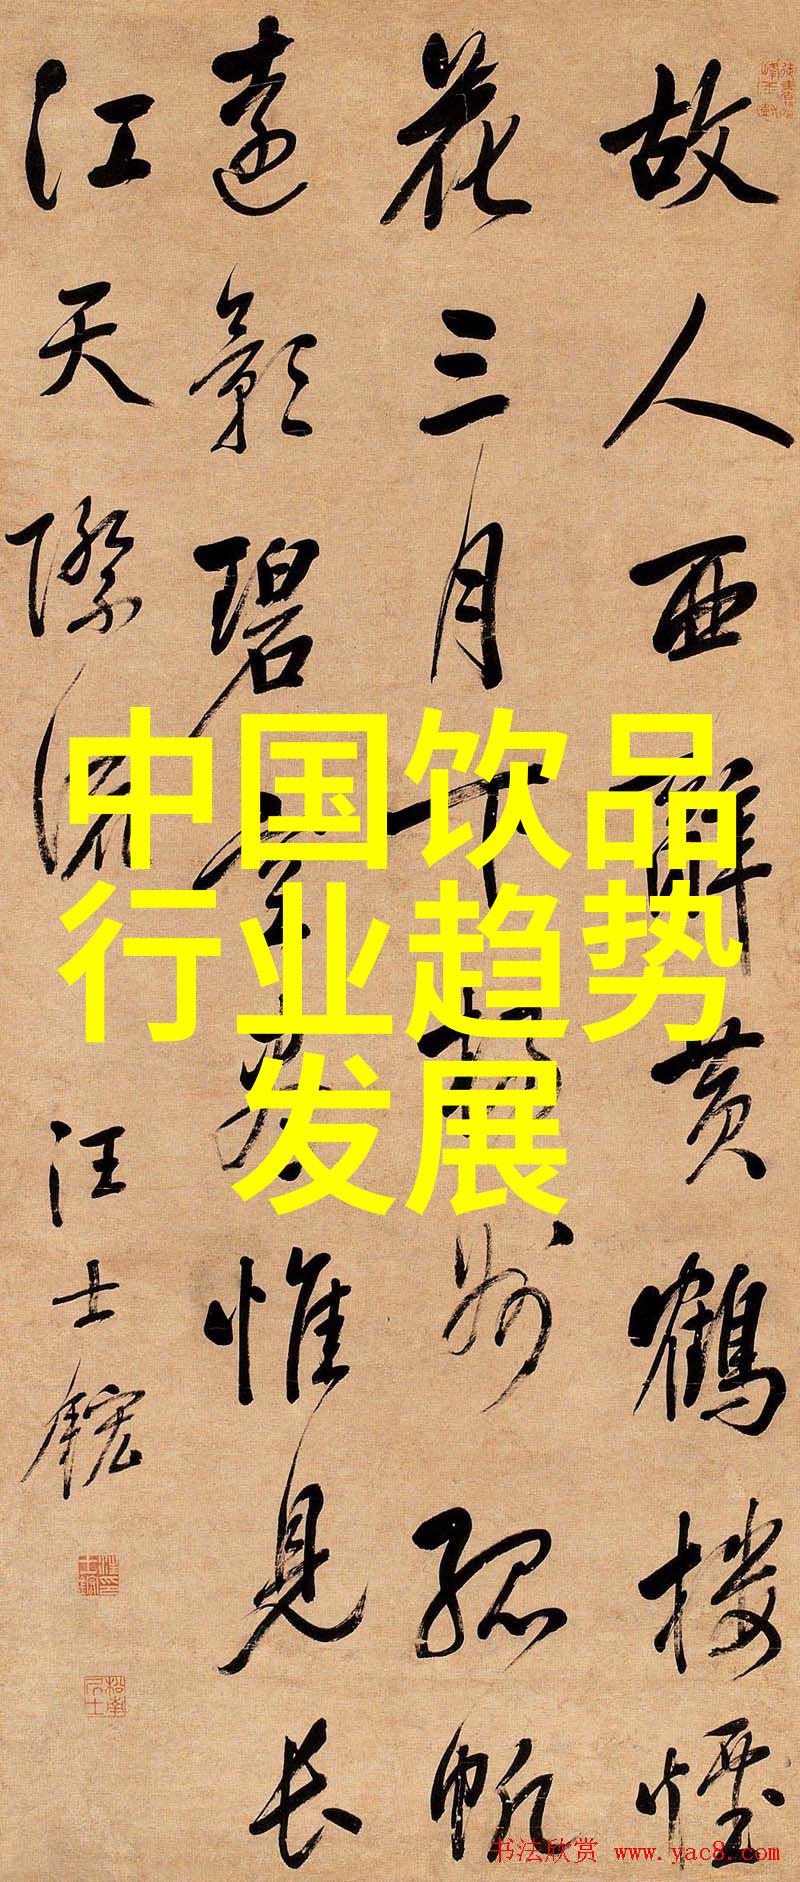 故人西辭黄鶴樓煙
花三月下揚州孤帆
遠影碧空盡惟見長
江天際流
汪士鋐
中国饮品
行业趋势
发展
书法欣赏 www.yac8.com